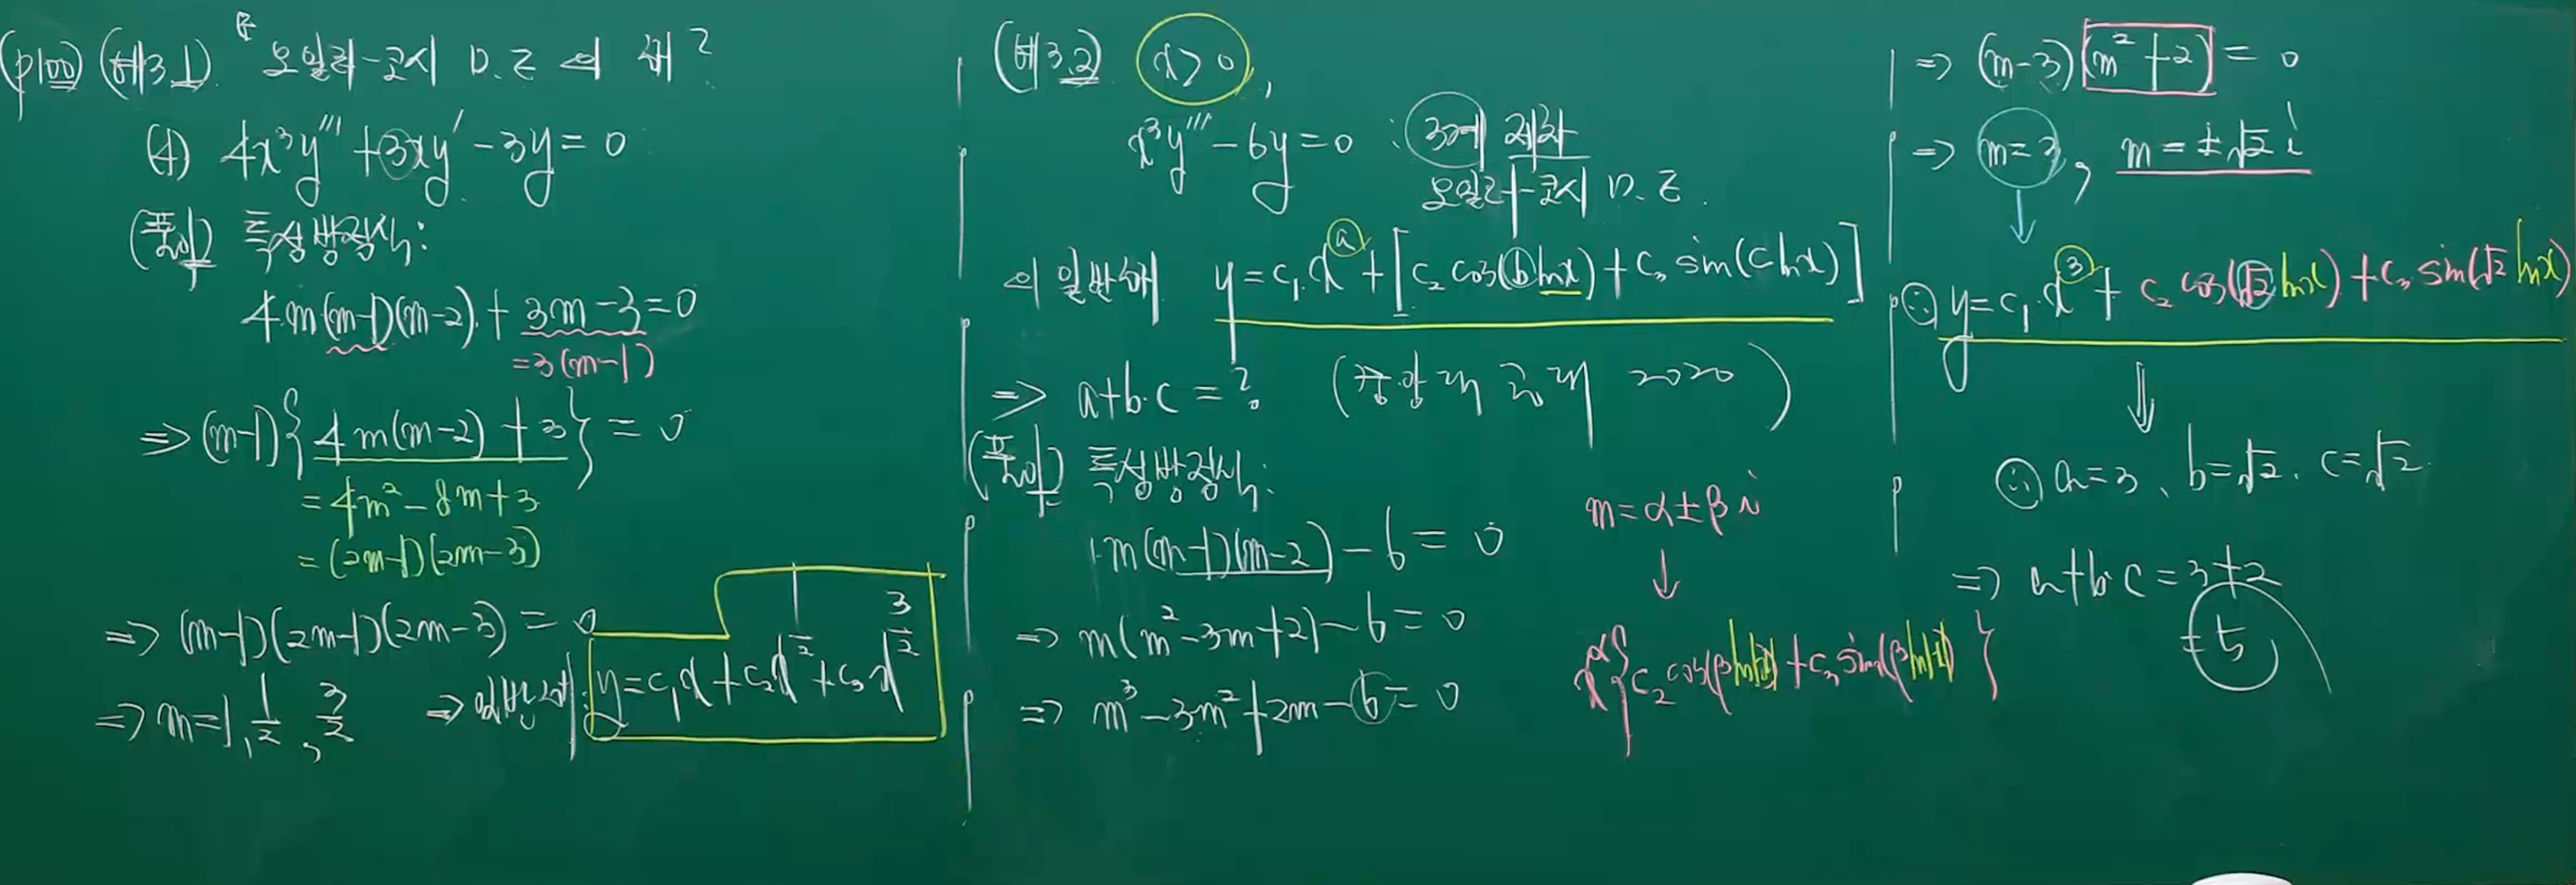 (p100) (예3.1) 오일러-코시 D.E 의 해?
(4) 4x³y''' + 3xy' - 3y = 0
(풀이) 특성방정식:
4·m(m-1)(m-2) + 3m - 3 = 0
= 3(m-1)
⇒ (m-1){4m(m-2) + 3} = 0
= 4m² - 8m + 3
= (2m-1)(2m-3)
⇒ (m-1)(2m-1)(2m-3) = 0
⇒ m = 1, 1/2, 3/2 ⇒ 일반해: y = c₁x + c₂x^(1/2) + c₃x^(3/2)
(예3.2) x > 0,
x³y''' - 6y = 0 : 3계 제차
오일러-코시 D.E.
의 일반해 y = c₁·x^a + [c₂ cos(b lnx) + c₃ sin(c lnx)]
⇒ a+b·c = ? (중앙대 공대 2020)
(풀이) 특성방정식:
m(m-1)(m-2) - 6 = 0
⇒ m(m² - 3m + 2) - 6 = 0
⇒ m³ - 3m² + 2m - 6 = 0
m = α ± βi
↓
x^α{c₂ cos(β lnx) + c₃ sin(β lnx)}
⇒ (m-3)(m² + 2) = 0
⇒ m = 3, m = ±√2 i
↓
∴ y = c₁·x³ + c₂ cos(√2 lnx) + c₃ sin(√2 lnx)
⇓
∴ a = 3, b = √2, c = √2
⇒ a+b·c = 3+2
= 5